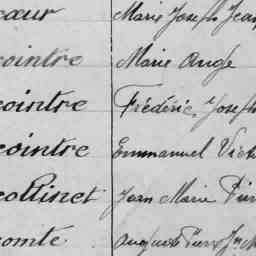 cœur Marie Joseph Jean
cointre Marie Ange
cointre Frédéric Joseph
cointre Emmanuel Vict
collinet Jean Marie Pier
comte Auguste Pierre Jn M